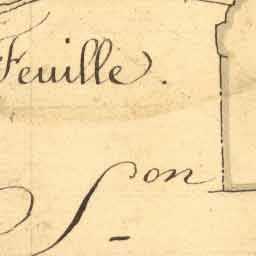 Feuille.
Son